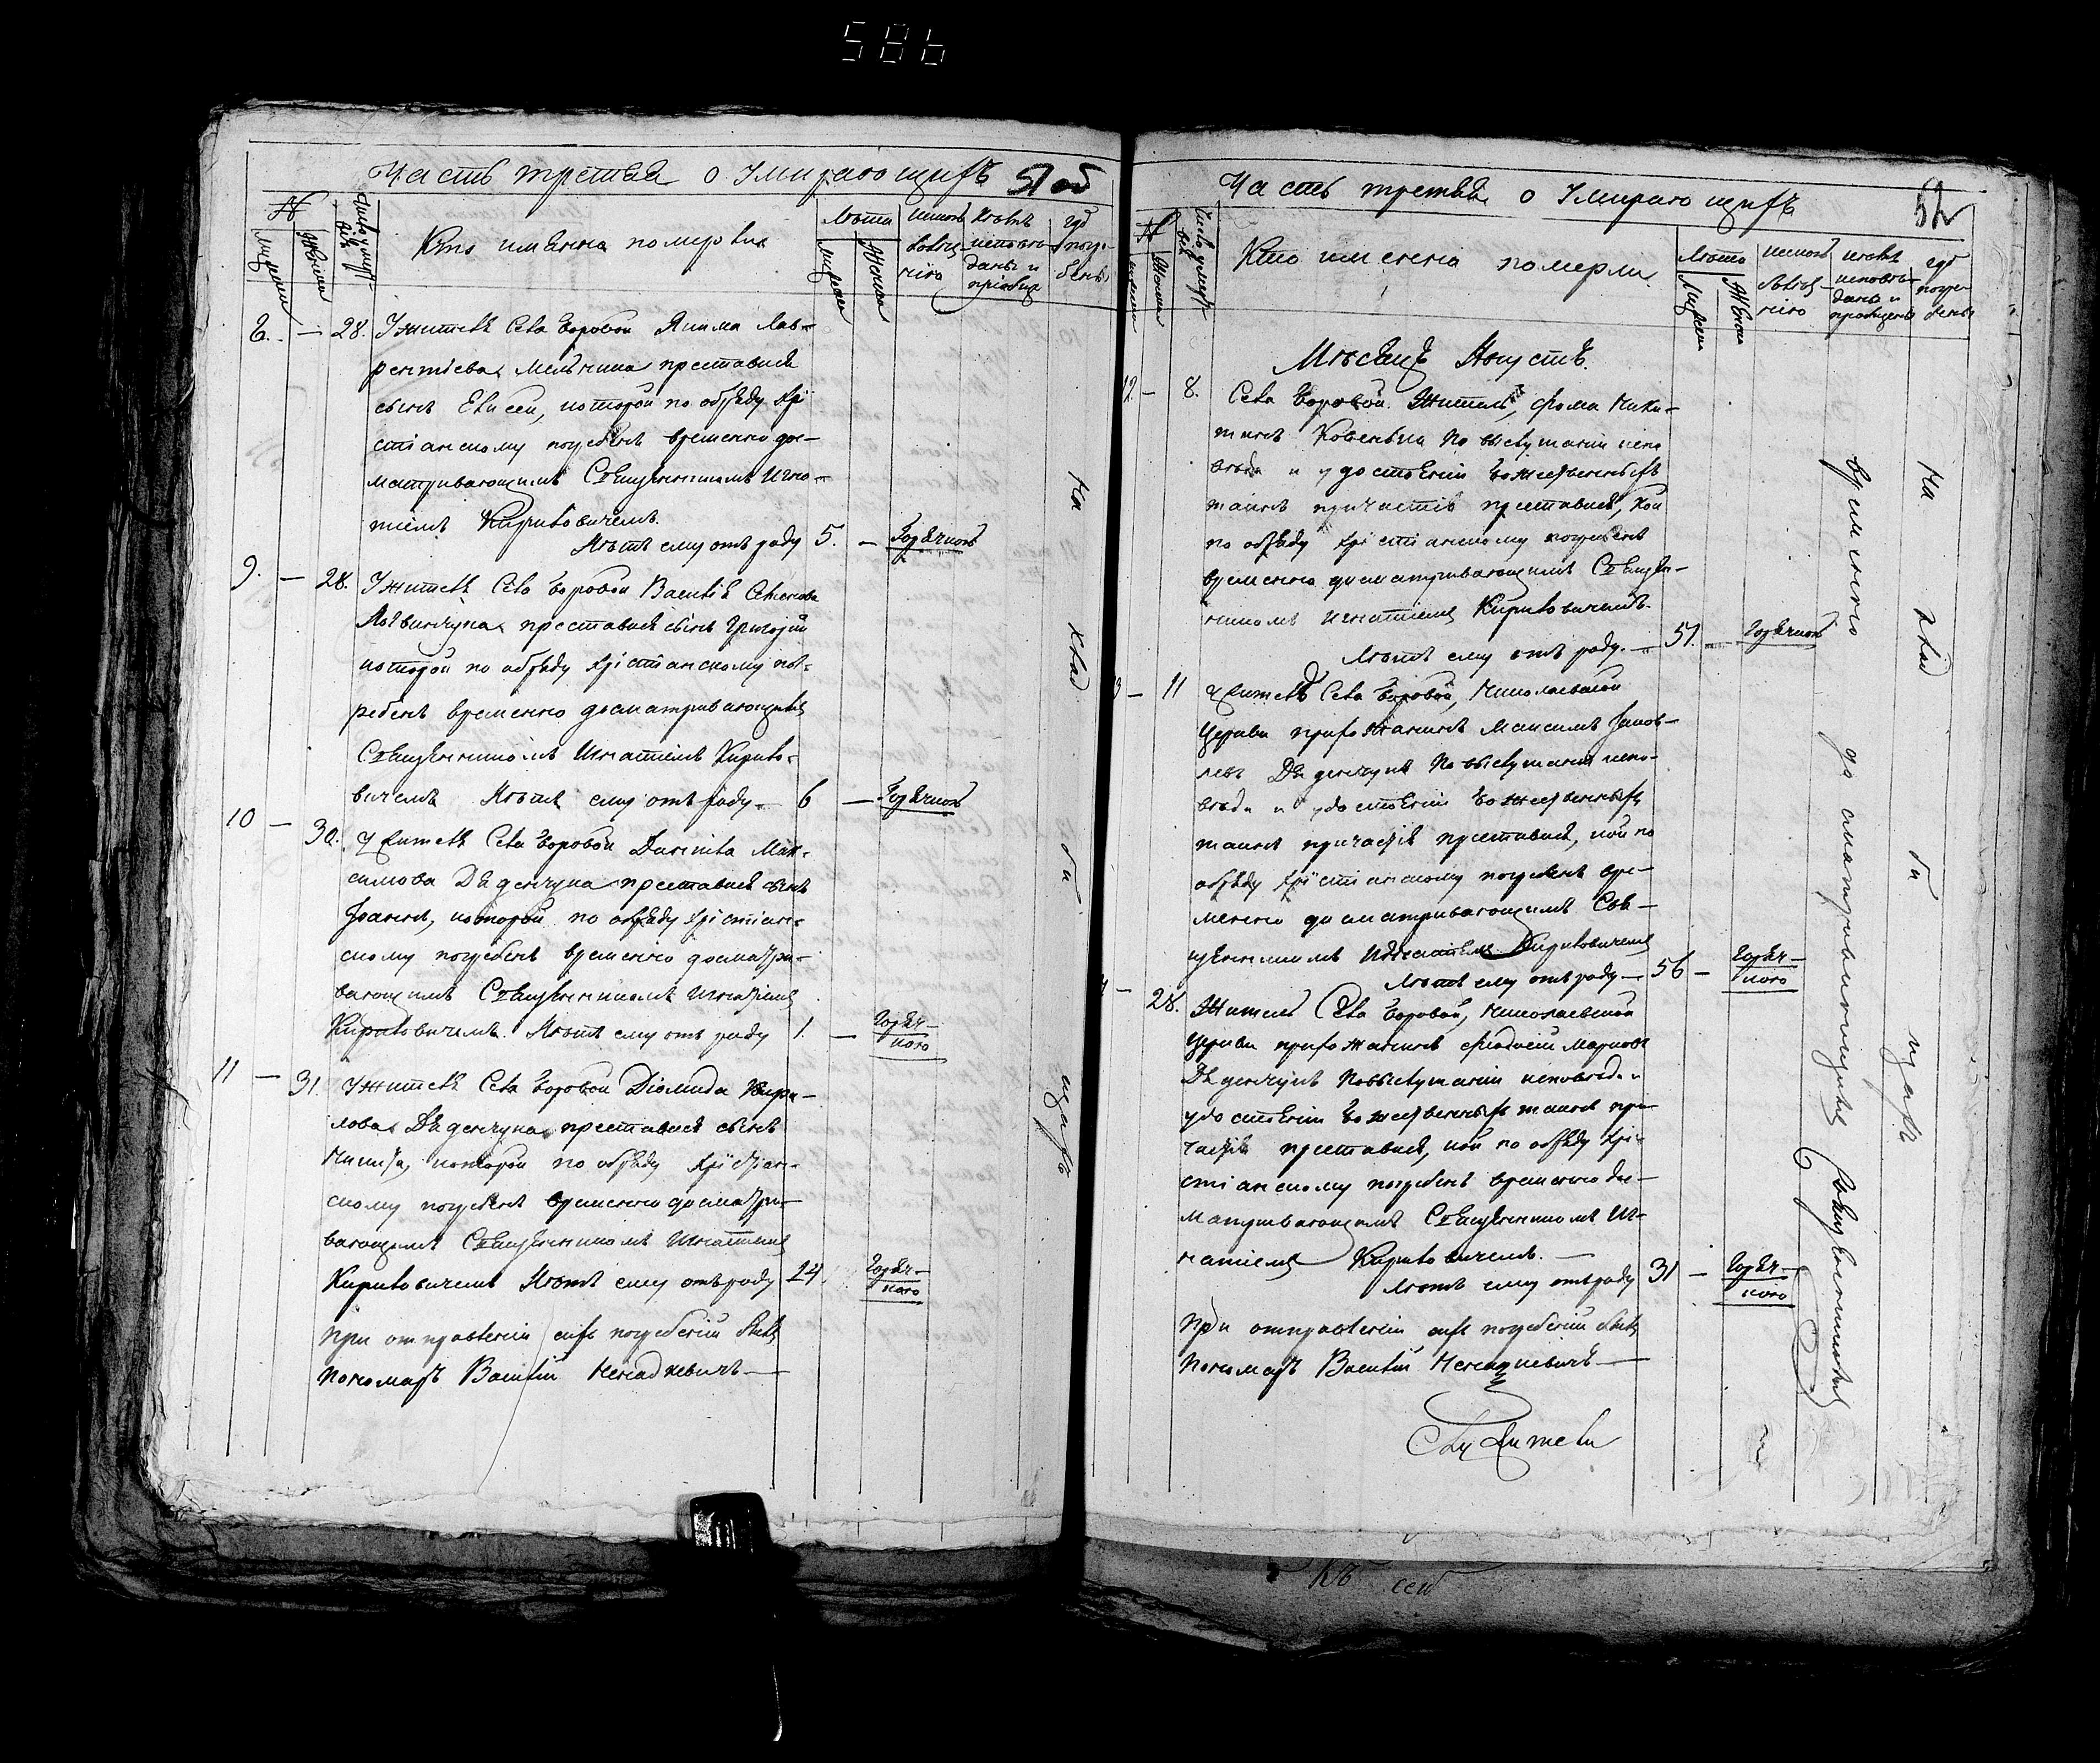 586
Часть третья о Умирающихъ 51 об
№
Мужеска
Женска
Число умер
Кто имянно померли
Лѣта
Мужеска
Женска
какою
болѣз
нію
Кѣмъ
исповѣ
даны и
пріобщ
гдѣ
погре
бены
8. — 28. У жителя Села Боровой Якима Лав-
рентіева Мельника преставися
сынъ Елисей, которой по обряду хрі
стіанскому погребенъ временно дос-
матривающимъ Священникомъ Игна-
тіемъ Кириловичемъ.
Лѣтъ ему отъ роду 5. — Горячкою
9. — 28. У жителя Села Боровой Василія Семенова
преставися сынъ Григорій
которой по обряду хрістіанскому пог-
ребенъ временно досматривающимъ
Священникомъ Игнатіемъ Кирило-
вичемъ Лѣтъ ему отъ роду — 6 — Горячкою
10 — 30. У жителя Села Боровой Даніила Мак-
симова Дяденчука преставися сынъ
Іоаннъ, которой по обряду хрістіан-
скому погребенъ временно досматри-
вающимъ Священникомъ Игнатіемъ
Кириловичемъ. Лѣтъ ему отъ роду 1. — Горяч-
кою
11 — 31. У жителя Села Боровой Діомида Кири-
лова Дяденчука преставися сынъ
Никита, которой по обряду хрістіан-
скому погребенъ временно досматри-
вающимъ Священникомъ Игнатіемъ
Кириловичемъ Лѣтъ ему отъ роду 14 Горяч-
кою
При отправленіи сихъ погребеній былъ
Пономарь Василій Ненадкевичъ —
На клад би щахъ
Часть третья о Умирающихъ 52
№
Женска
Число умер
Кто именно померли
Лѣта
Мужеска
Женска
какою
болѣз
нію
кѣмъ
исповѣ
даны и
пріобщены
гдѣ
погре
бены
Мѣсяцъ Августъ.
12. — 8. Села Боровой Житель, Фома Ники-
тинъ по выслушаніи испо
вѣди и удостоеніи Божественныхъ
таинъ причастія преставися, кой
по обряду хрістіанскому погребенъ
временно досматривающимъ Священ-
никомъ Игнатіемъ Кириловичемъ.
Лѣтъ ему отъ роду. — 51. — Горячкою
13 — 11 Житель Села Боровой, Николаевской
Церкви прихожанинъ Максимъ Іаков-
левъ Дяденчукъ по выслушаніи испо-
вѣди и удостоеніи Божественныхъ
таинъ причастія преставися, кой по
обряду хрістіанскому погребенъ вре-
менно досматривающимъ Свя-
щенникомъ Игнатіемъ Кириловичемъ
Лѣтъ ему отъ роду — 56 — Горяч-
кою
— 28. Житель Села Боровой, Николаевской
Церкви прихожанинъ Марковъ
Дяденчукъ по выслушаніи исповѣди и
удостоеніи Божественныхъ таинъ при-
частія преставися, кой по обряду хрі-
стіанскому погребенъ временно дос-
матривающимъ Священникомъ Иг-
натіемъ Кириловичемъ. —
Лѣтъ ему отъ роду 31 — Горяч-
кою
При отправленіи сихъ погребеній былъ
Пономарь Василій Ненадкевичъ —
временно до сматривающимъ Священникомъ
На клад би щахъ